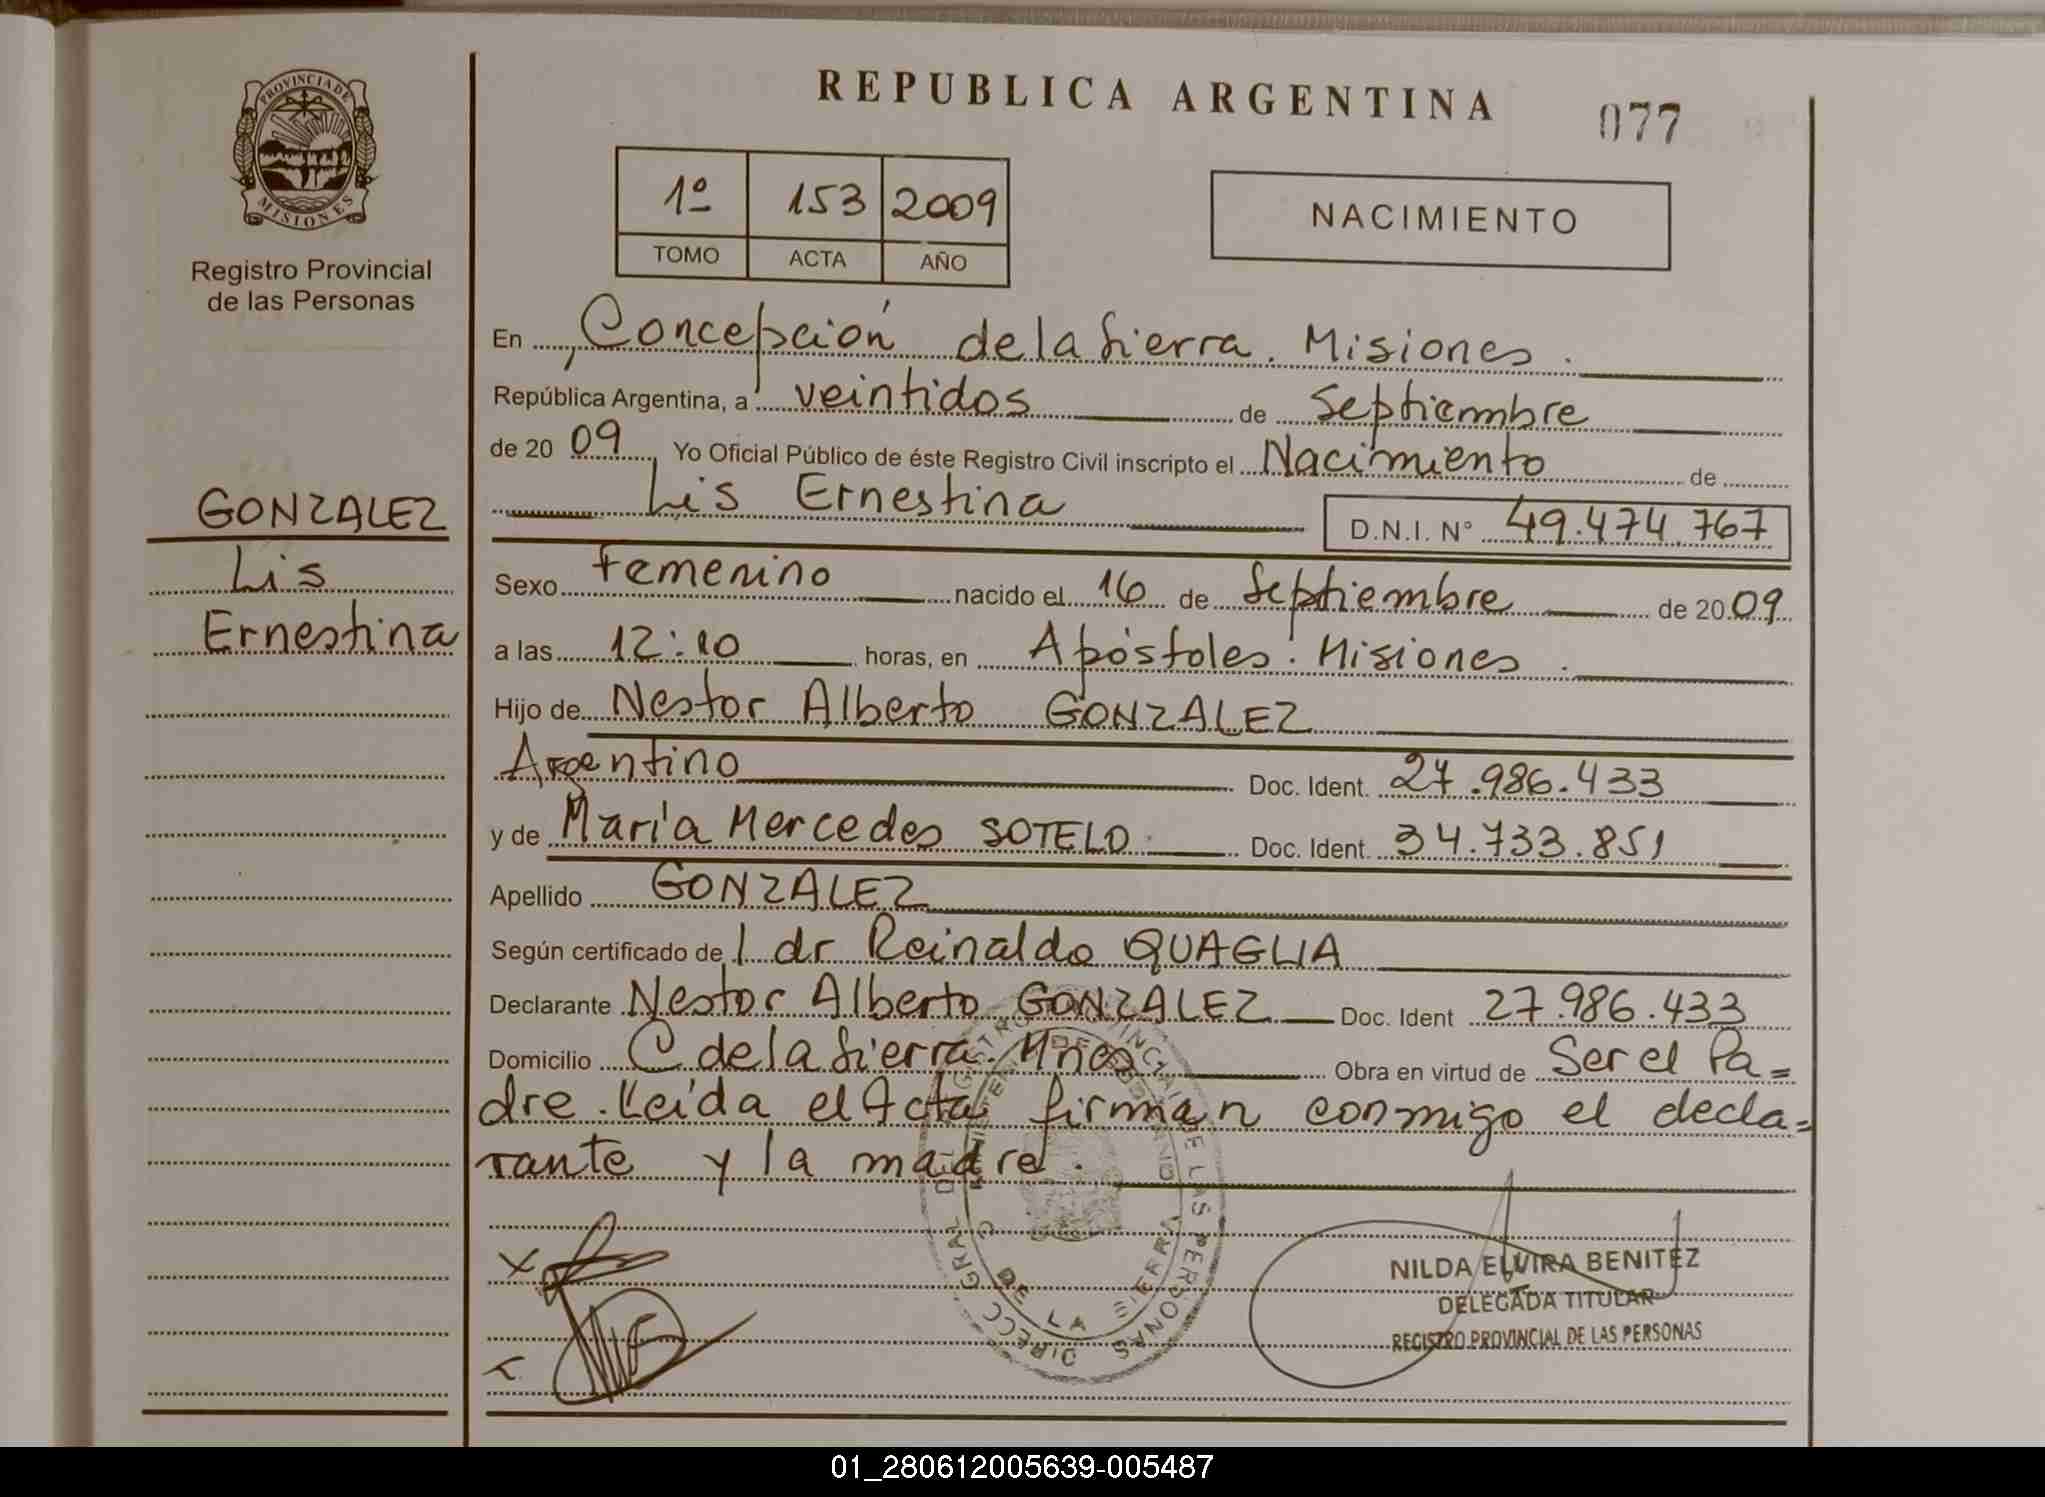 PROVINCIA DE
MISIONES
Registro Provincial
de las Personas
GONZALEZ
Lis
Ernestina
REPUBLICA ARGENTINA
077
1º 153 2009
TOMO ACTA AÑO
NACIMIENTO
En Concepción de la Sierra. Misiones.
República Argentina, a veintidos de Septiembre
de 20 09 Yo Oficial Público de éste Registro Civil inscripto el Nacimiento de
Lis Ernestina D.N.I. N° 49.474.767
Sexo Femenino nacido el 16 de Septiembre de 20 09
a las 12:10 horas, en Apóstoles. Misiones.
Hijo de Nestor Alberto GONZALEZ
Argentino Doc. Ident. 27.986.433
y de María Mercedes SOTELO. Doc. Ident. 34.733.851
Apellido GONZALEZ
Según certificado de l dr Reinaldo QUAGLIA
Declarante Nestor Alberto GONZALEZ Doc. Ident 27.986.433
Domicilio C de la Sierra. Mnes Obra en virtud de Ser el Pa=
dre. Leída el Acta firman conmigo el decla=
rante y la madre.
DIRECC GRAL DEL REGISTRO PROVINCIAL DE LAS PERSONAS
MINISTERIO DE GOBIERNO
C DE LA SIERRA
NILDA ELVIRA BENITEZ
DELEGADA TITULAR
REGISTRO PROVINCIAL DE LAS PERSONAS
01_280612005639-005487